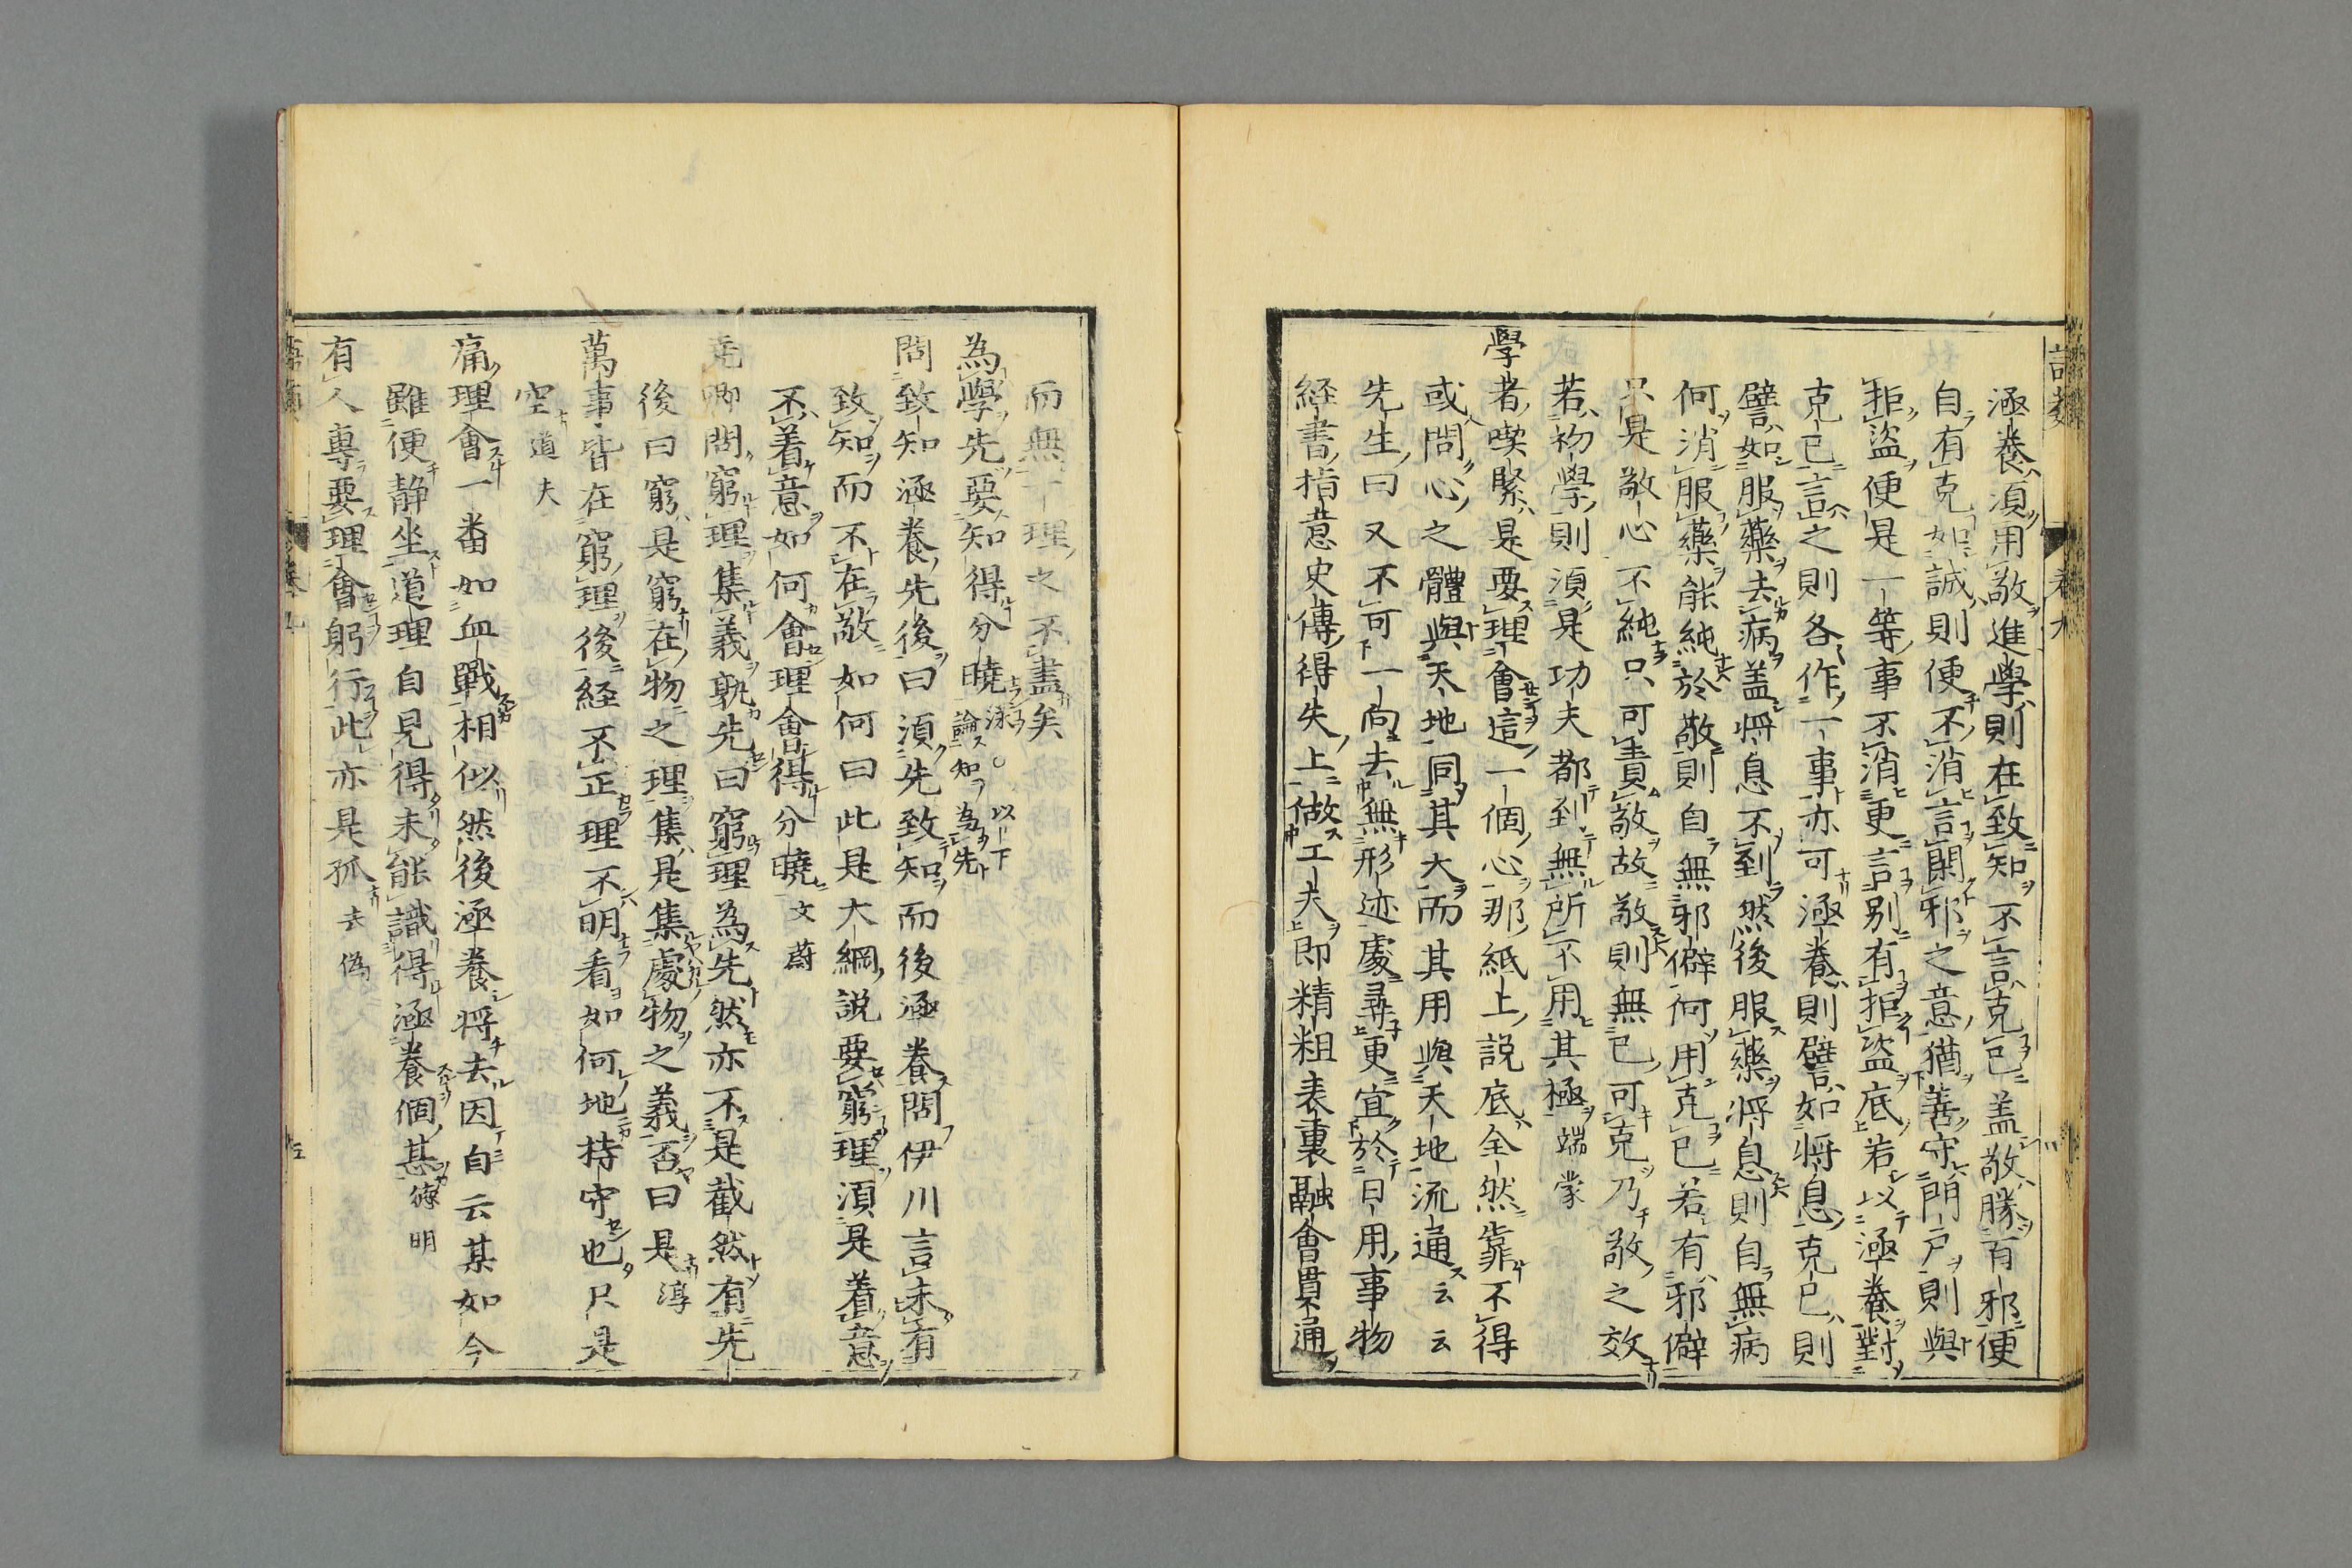 涵養須用敬進學則在致知不言克己盖敬勝百邪便
自有克如誠則便不消言閑邪之意猶善守門戸則與
拒盜便是一等事不消更言別有拒盜底若以涵養對
克己言之則各作一事亦可涵養則譬如將息克己則
譬如服藥去病盖將息不到然後服藥將息則自無病
何消服藥能純於敬則自無邪僻何用克己若有邪僻
只是敬心不純只可責敬故敬則無己可克乃敬之效
若初學則須是功夫都到無所不用其極 端蒙
學者喫緊是要理會這一個心那紙上說底全然靠不得
或問心之體與天地同其大而其用與天地流通云云
先生曰又不可一向去無形迹處尋更宜於日用事物
経書指意史傳得失上做工夫即精粗表裏融會貫通
而無一理之不盡矣
為學先要知得分曉 泳○以下論知為先
問致知涵養先後曰須先致知而後涵養問伊川言未有
致知而不在敬如何曰此是大綱說要窮理須是着意
不着意如何會理會得分曉 文蔚
堯卿問窮理集義孰先曰窮理為先然亦不是截然有先
後曰窮是窮在物之理集是集處物之義否曰是 淳
萬事皆在窮理後経不正理不明看如何地持守也只是
空 道夫
痛理會一番如血戰相似然後涵養將去因自云某如今
雖便静坐道理自見得未能識得涵養個甚 德明
有人專要理會躬行此亦是孤 去偽